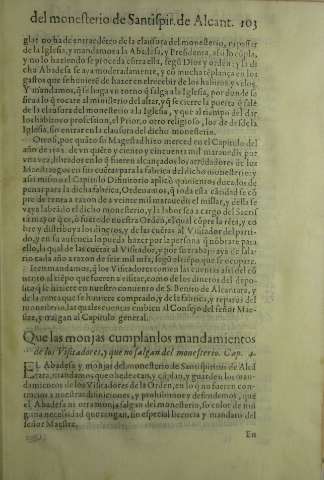 del monesterio de Santispir. de Alcant. 103
glar no ha de entrar dẽtro de la clausura del monesterio,
de la Iglesia, y mandamos a la Abadesa, y Presidenta, assi lo cũpla,
y no lo haziendo se proceda cõtra ella, segũ Dios y orden: y la di
cha Abadesa se aya moderadamente, y cõ mucha tẽplança en los
gastos que se huuiere de hazer en el recebir de los habitos y velos.
Y mandamos, q̃ se haga vn torno q̃ salga a la Iglesia, por donde se
sirua lo q̃ tocare al ministerio del altar, y q̃ se cierre la puerta q̃ sale
de la clausura del monesterio a la Iglesia, y que al tiempo del dar
los habitos o profession, el Prior, o otro religioso, los de desde la
Iglesia, sin entrar en la clausura del dicho monesterio.
Otrosi, por quãto su Magestad hizo merced en el Capitulo del
año de
vna vez, librados en lo q̃ fueren alcançados los arrẽdadores de los
Maestrazgos en sus cuẽtas para la fabrica del dicho monesterio: y
assi mismo el Capitulo Difinitorio aplicò quinientos ducados de
penas para la dicha fabrica, Ordenamos, q̃ toda esta cãtidad se cõ
pre de renta a razon de a veinte mil marauedis el millar, y desta se
vaya labrãdo el dicho monesterio, y la labor sea a cargo del Sacri
stã mayor q̃ es, o fuere de nuestra Orden, el qual cõpre la rẽta, y co
bre y distribuya los dineros, y de las cuẽtas al Visitador del parti-
do, y en su ausencia lo pueda hazer por la persona q̃ nõbrare para
ello, la qual de las cuẽtas al Visitador, y por su trabajo aya de sala-
rio cada año a razon de seis mil mrs, segũ el tiẽpo que se ocupare.
Item mandamos, q̃ los Visitadores tomen las cuentas assi del cõ
uento al tiẽpo que fueren a visitar, como de los dineros del depo-
sito q̃ se hiziere en nuestro conuento de S. Benito de Alcantara, y
de la renta que se huuiere comprado, y de la fabrica, y reparos del
monesterio, las quales cuentas embien al Consejo del señor Mae-
stre, y traigan al Capitulo general.
Que las monjas cumplan los mandamientos
de los Visitadores, y que no salgan del monesterio. Cap. 4.
EL Abadesa y monjas del monesterio de Santispiritus de Alcã
tara, mandamos que obedezcan, y cũplan, y guarden los man-
damientos de los Visitadores de la Orden, en lo q̃ no fueren con-
trarios a nuestras difiniciones, y prohibimos y defendemos, que
el Abadesa ni otra monja salga del monesterio, so color de nin
guna necessidad que tengan, sin especial licencia y mandato del
señor Maestre.
En